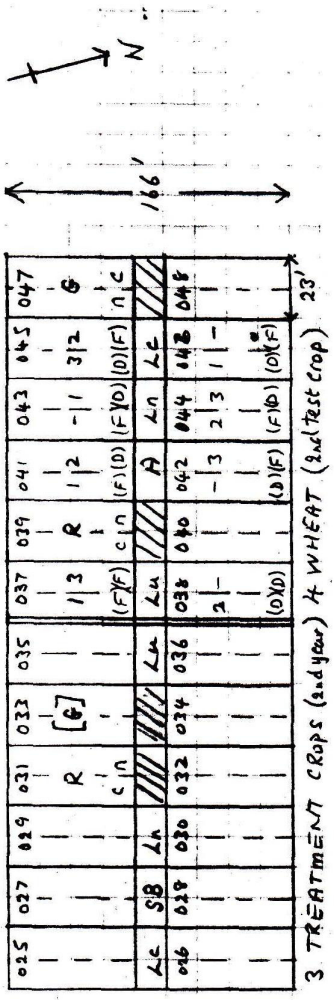 025 027 029 031 033 035 037 039 041 043 045 047
R [G] 1 3 R 1 2 - 1 3 2 G
c n (F)(F) c n (F)(D) (F)(D) (D)(F) n c
Lc SB Ln Lu Lu A Ln Lc
026 028 030 032 034 036 038 040 042 044 046 048
2 - - 3 2 3 1 -
(D)(D) (D)(F) (F)(D) (D)(F)
166'
N
23'
3 TREATMENT CROPS (2nd year) 4 WHEAT (2nd Test Crop)